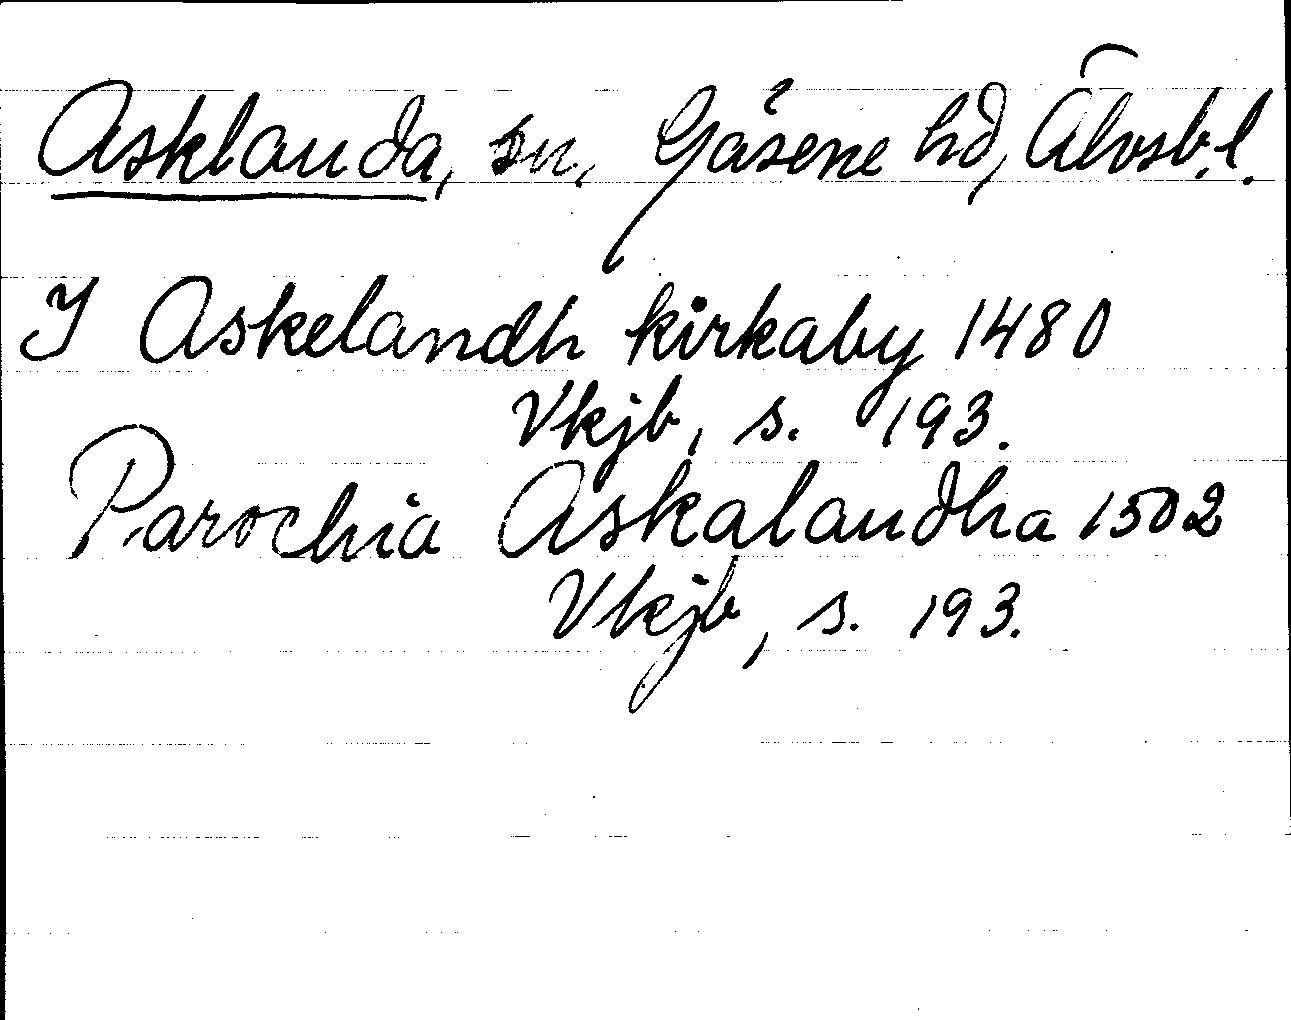 Asklanda, sn, Gäsene hd, Älvsb. l.
I Askelandh kirkaby 1480
Vkjb, s. 193.
Parochia Askalandha 1502
Vkjb, s. 193.